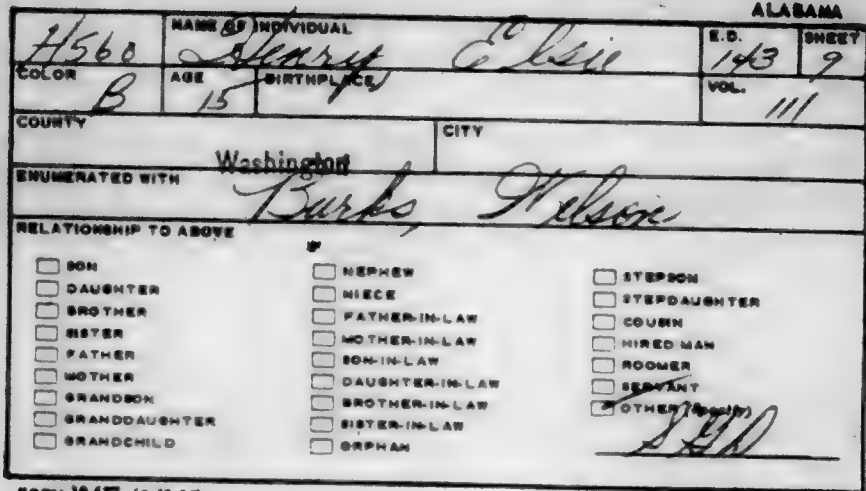 ALABAMA
H560
NAME OF INDIVIDUAL
Henry Elsie
E.D.
143
SHEET
9
COLOR
B
AGE
15
BIRTHPLACE
VOL.
111
COUNTY
Washington
CITY
ENUMERATED WITH
Burks, Nelson
RELATIONSHIP TO ABOVE
SON
DAUGHTER
BROTHER
SISTER
FATHER
MOTHER
GRANDSON
GRANDDAUGHTER
GRANDCHILD
NEPHEW
NIECE
FATHER-IN-LAW
MOTHER-IN-LAW
SON-IN-LAW
DAUGHTER-IN-LAW
BROTHER-IN-LAW
SISTER-IN-LAW
ORPHAN
STEPSON
STEPDAUGHTER
COUSIN
HIRED MAN
ROOMER
SERVANT
OTHER (Specify)
SGD